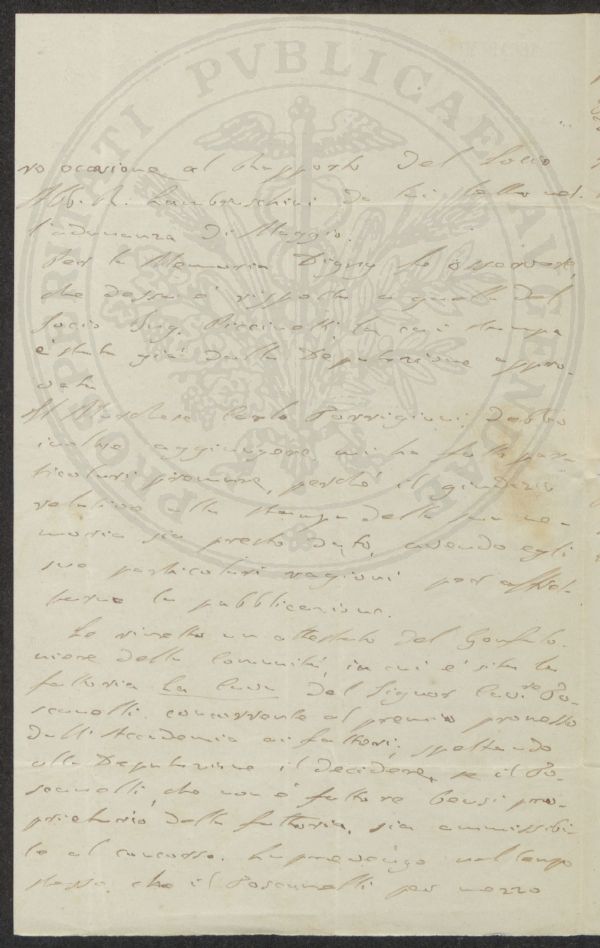 PROSPERITATI PVBLICAE AVGENDAE
ro occasione al Rapporto del Socio
Ab. R. Lambruschini da lui letto nel-
l'adunanza di Maggio.
Per la Memoria Digny fo osservare,
che dessa è risposta a quella del
Socio Sig. la cui stampa
è stata già dalla Deputazione appro-
vata
Il Marchese Carlo Torrigiani debbo
inoltre aggiungere mi ha fatto par-
ticolari premure, perché il giudizio
relativo alla stampa della sua me-
moria sia presto dato, avendo egli
sue particolari ragioni per affret-
tarne la pubblicazione.
Le rimetto un attestato del Gonfalo-
niere della Comunità, in cui è sita la
fattoria La Cava del Signor Cav.re To-
scanelli concorrente al premio promesso
dall'Accademia ai fattori; spettando
alla Deputazione il decidere, se il To-
scanelli, che non è fattore bensì pro-
prietario della fattoria, sia ammissibi-
le al concorso. La prevengo nel tempo
stesso, che il Toscanelli per mezzo